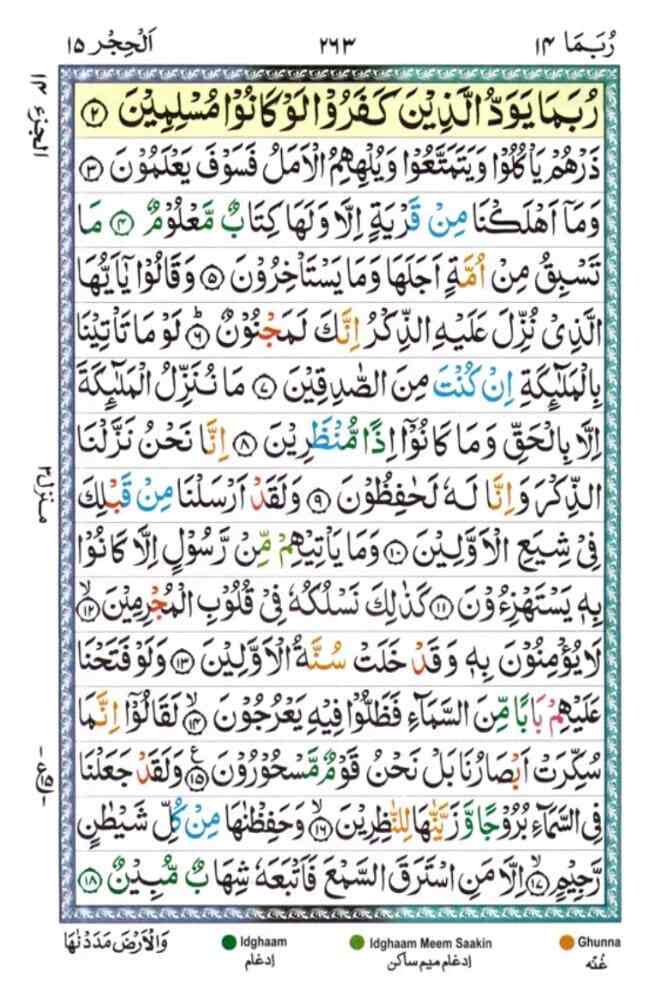 رُبَمَا ١٤
٢٦٣
اَلْحِجْر ١٥
الجزء ١٤
رُبَمَا يَوَدُّ الَّذِيْنَ كَفَرُوْا لَوْ كَانُوْا مُسْلِمِيْنَ ﴿٢﴾
ذَرْهُمْ يَاْكُلُوْا وَيَتَمَتَّعُوْا وَيُلْهِهِمُ الْاَمَلُ فَسَوْفَ يَعْلَمُوْنَ ﴿٣﴾
وَمَاۤ اَهْلَكْنَا مِنْ قَرْيَةٍ اِلَّا وَلَهَا كِتَابٌ مَّعْلُوْمٌ ﴿٤﴾ مَا
تَسْبِقُ مِنْ اُمَّةٍ اَجَلَهَا وَمَا يَسْتَاْخِرُوْنَ ﴿٥﴾ وَقَالُوْا يٰۤاَيُّهَا
الَّذِيْ نُزِّلَ عَلَيْهِ الذِّكْرُ اِنَّكَ لَمَجْنُوْنٌ ﴿٦﴾ؕ لَوْ مَا تَاْتِيْنَا
بِالْمَلٰٓئِكَةِ اِنْ كُنْتَ مِنَ الصّٰدِقِيْنَ ﴿٧﴾ مَا نُنَزِّلُ الْمَلٰٓئِكَةَ
اِلَّا بِالْحَقِّ وَمَا كَانُوْۤا اِذًا مُّنْظَرِيْنَ ﴿٨﴾ اِنَّا نَحْنُ نَزَّلْنَا
الذِّكْرَ وَاِنَّا لَهٗ لَحٰفِظُوْنَ ﴿٩﴾ وَلَقَدْ اَرْسَلْنَا مِنْ قَبْلِكَ
فِيْ شِيَعِ الْاَوَّلِيْنَ ﴿١٠﴾ وَمَا يَاْتِيْهِمْ مِّنْ رَّسُوْلٍ اِلَّا كَانُوْا
بِهٖ يَسْتَهْزِءُوْنَ ﴿١١﴾ كَذٰلِكَ نَسْلُكُهٗ فِيْ قُلُوْبِ الْمُجْرِمِيْنَ ﴿١٢﴾ۙ
لَا يُؤْمِنُوْنَ بِهٖ وَقَدْ خَلَتْ سُنَّةُ الْاَوَّلِيْنَ ﴿١٣﴾ وَلَوْ فَتَحْنَا
عَلَيْهِمْ بَابًا مِّنَ السَّمَآءِ فَظَلُّوْا فِيْهِ يَعْرُجُوْنَ ﴿١٤﴾ۙ لَقَالُوْۤا اِنَّمَا
سُكِّرَتْ اَبْصَارُنَا بَلْ نَحْنُ قَوْمٌ مَّسْحُوْرُوْنَ ﴿١٥﴾ۧ وَلَقَدْ جَعَلْنَا
فِي السَّمَآءِ بُرُوْجًا وَّزَيَّنّٰهَا لِلنّٰظِرِيْنَ ﴿١٦﴾ۙ وَحَفِظْنٰهَا مِنْ كُلِّ شَيْطٰنٍ
رَّجِيْمٍ ﴿١٧﴾ۙ اِلَّا مَنِ اسْتَرَقَ السَّمْعَ فَاَتْبَعَهٗ شِهَابٌ مُّبِيْنٌ ﴿١٨﴾
منزل ٣
وَالْاَرْضَ مَدَدْنٰهَا
Idghaam
ادغام
Idghaam Meem Saakin
ادغام ميم ساكن
Ghunna
غُنّه